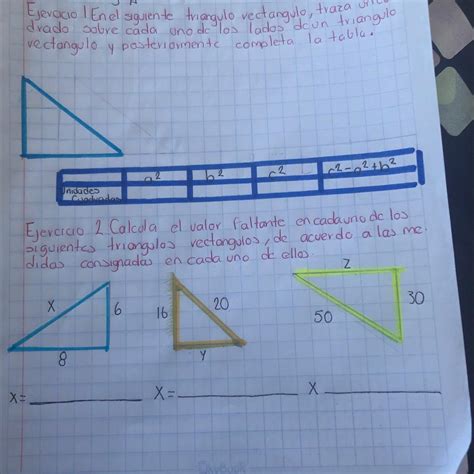 Ejercicio 1 En el siguiente triangulo rectangulo, traza un c
drado sobre cada uno de los lados de un triangulo
rectangulo y posteriormente completa la tabla.
a² b² c² c²=a²+b²
Unidades
Cuadradas
Ejercicio 2 Calcula el valor faltante en cada uno de los
siguientes triangulos rectangulos, de acuerdo a las me
didas consignadas en cada uno de ellos.
X 6 8
16 20 y
z 50 30
X= X= X